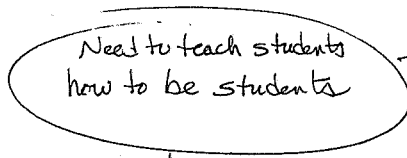 Need to teach students
how to be students